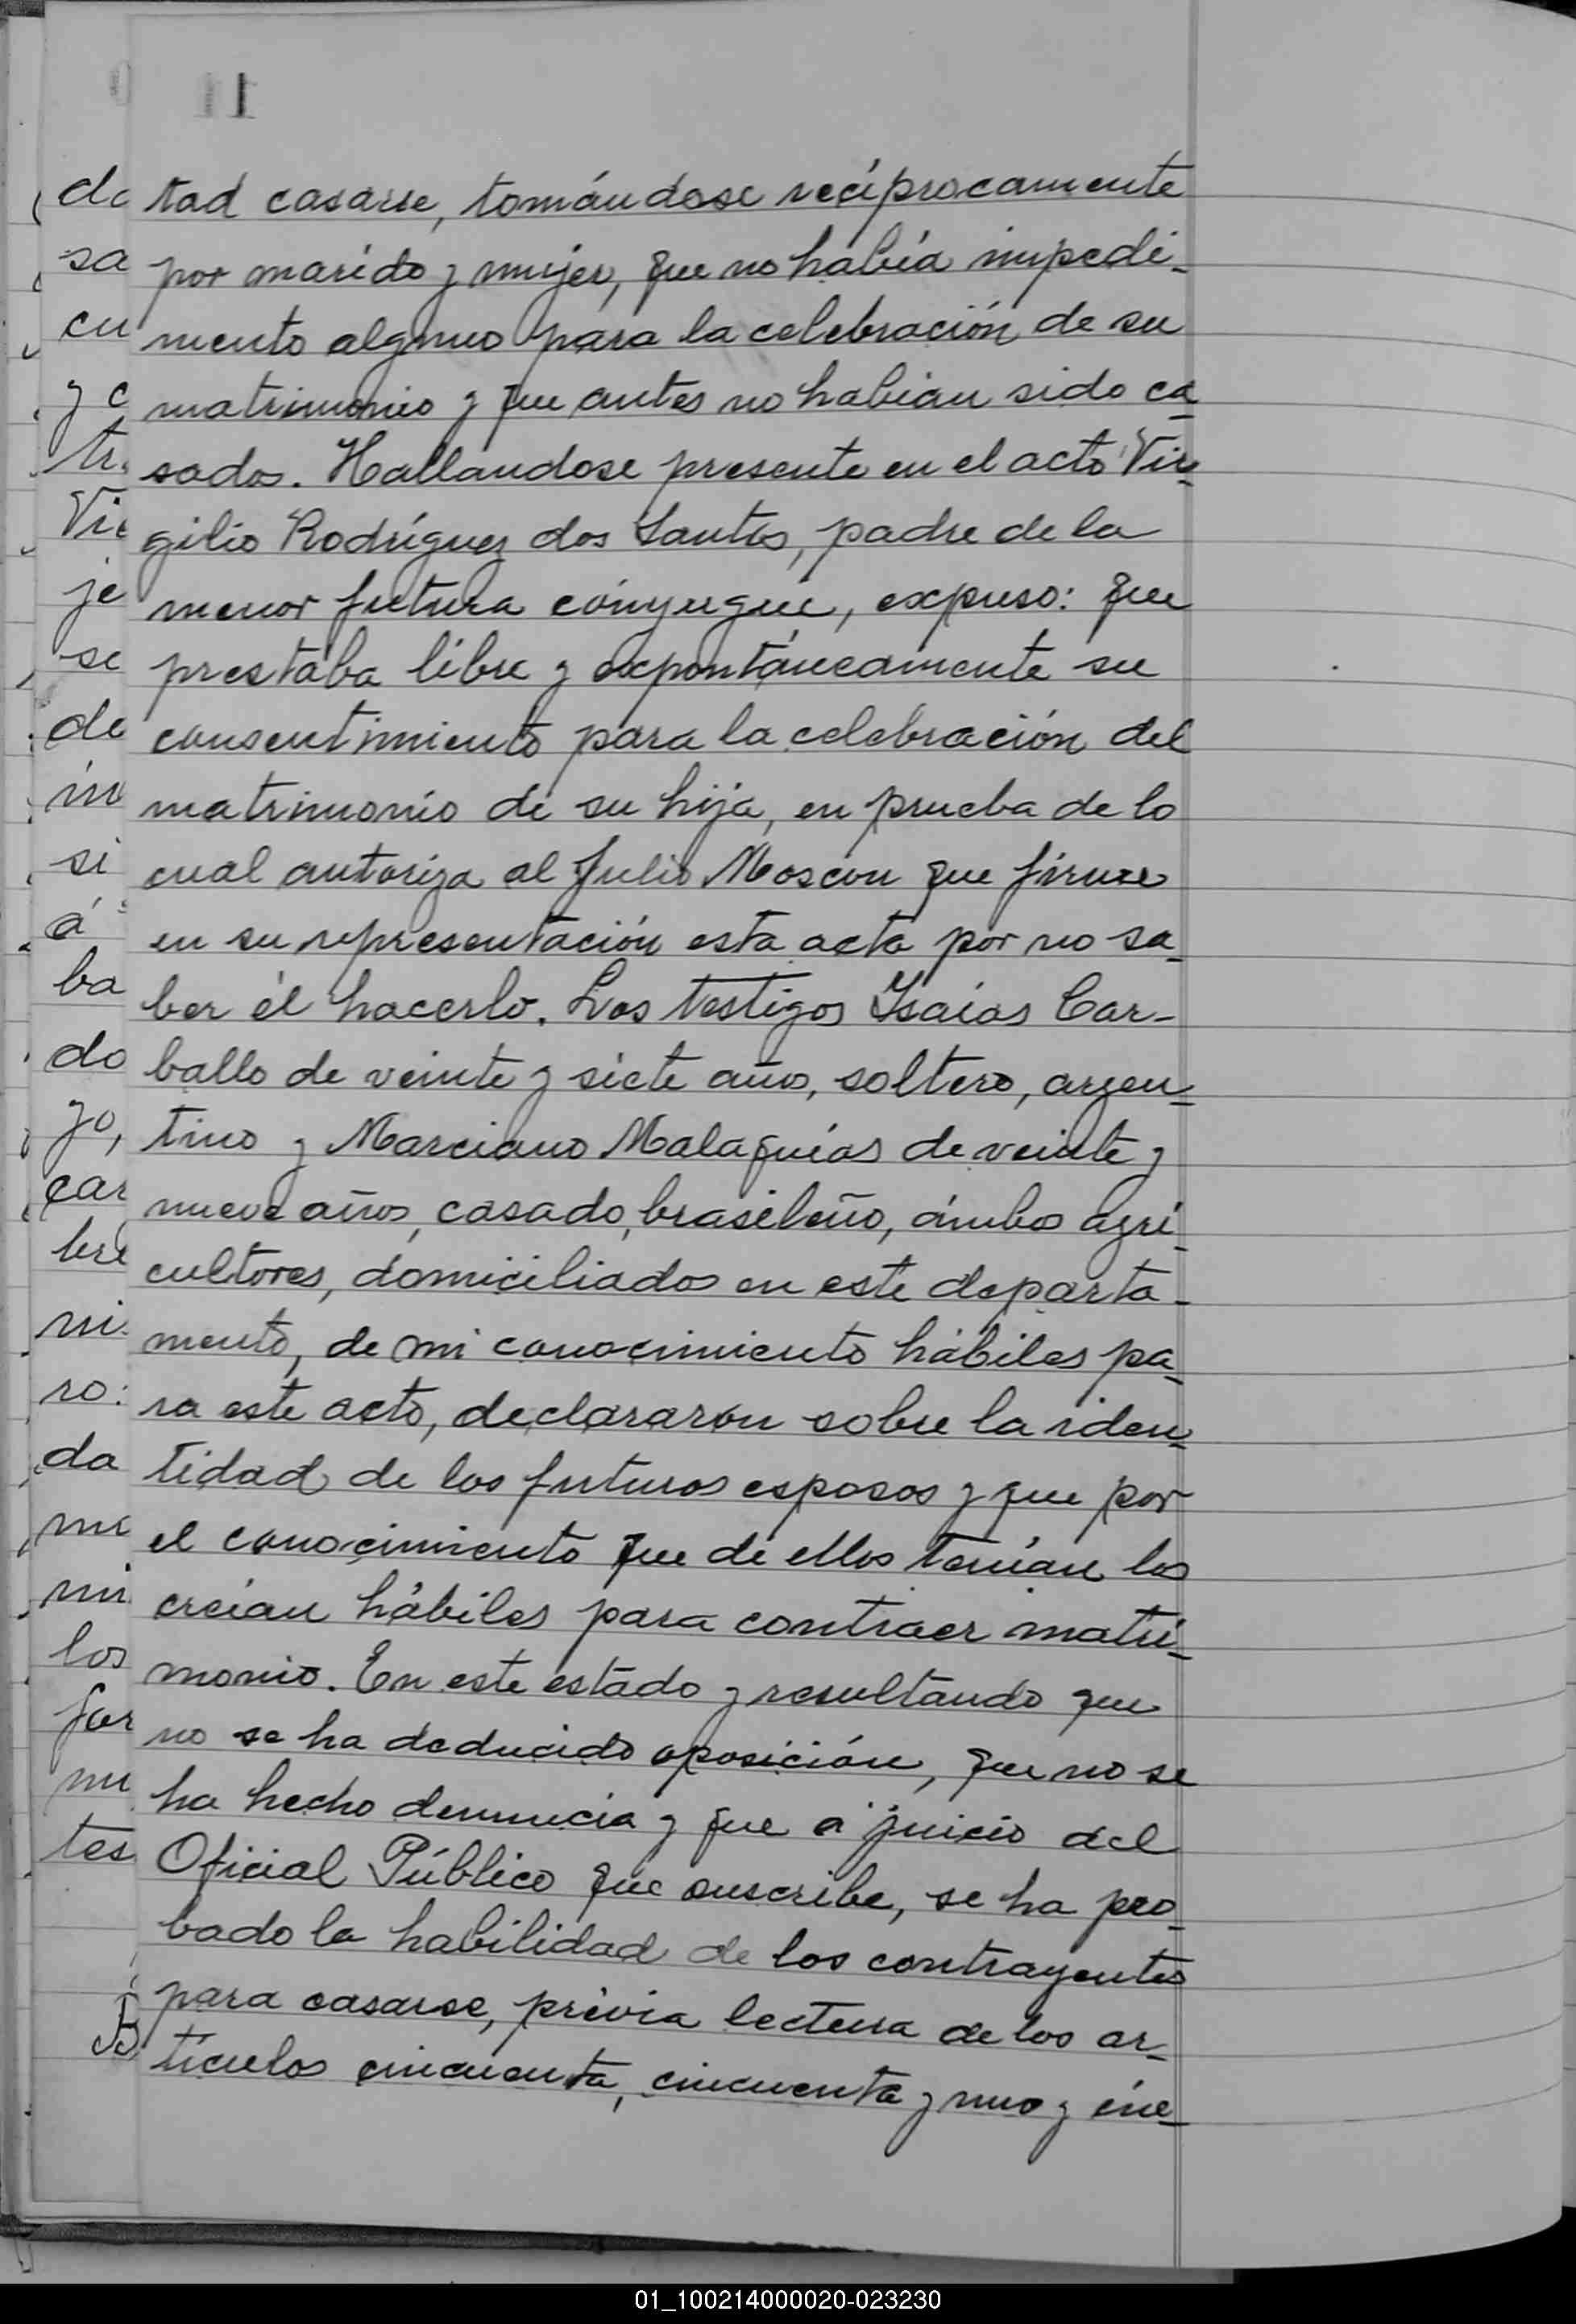 tad casarse, tomándose recíprocamente
por marido y mujer, que no había impedi-
mento alguno para la celebración de su
matrimonio y que antes no habian sido ca-
sados. Hallandose presente en el acto Vir-
gilio Rodríguez dos Santos, padre de la
menor futura cónyugue, expuso: que
prestaba libre y expontáneamente su
consentimiento para la celebración del
matrimonio de su hija, en prueba de lo
cual autoriza al Julio Moscon que firme
en su representación esta acta por no sa-
ber él hacerlo. Los testigos Isaías Car-
ballo de veinte y siete años, soltero, argen-
tino y Marciano Malaquías de veinte y
nueve años, casado, brasileño, ámbos agri-
cultores, domiciliados en este departa-
mento, de mi conocimiento hábiles pa-
ra este acto, declararon sobre la iden-
tidad de los futuros esposos y que por
el conocimiento que de ellos tenían los
creían hábiles para contraer matri-
monio. En este estado y resultando que
no se ha deducido oposición, que no se
ha hecho denuncia y que a juicio del
Oficial Público que suscribe, se ha pro-
bado la habilidad de los contrayentes
para casarse, prévia lectura de los ar-
tículos cincuenta, cincuenta y uno y cinc-
01_100214000020-023230